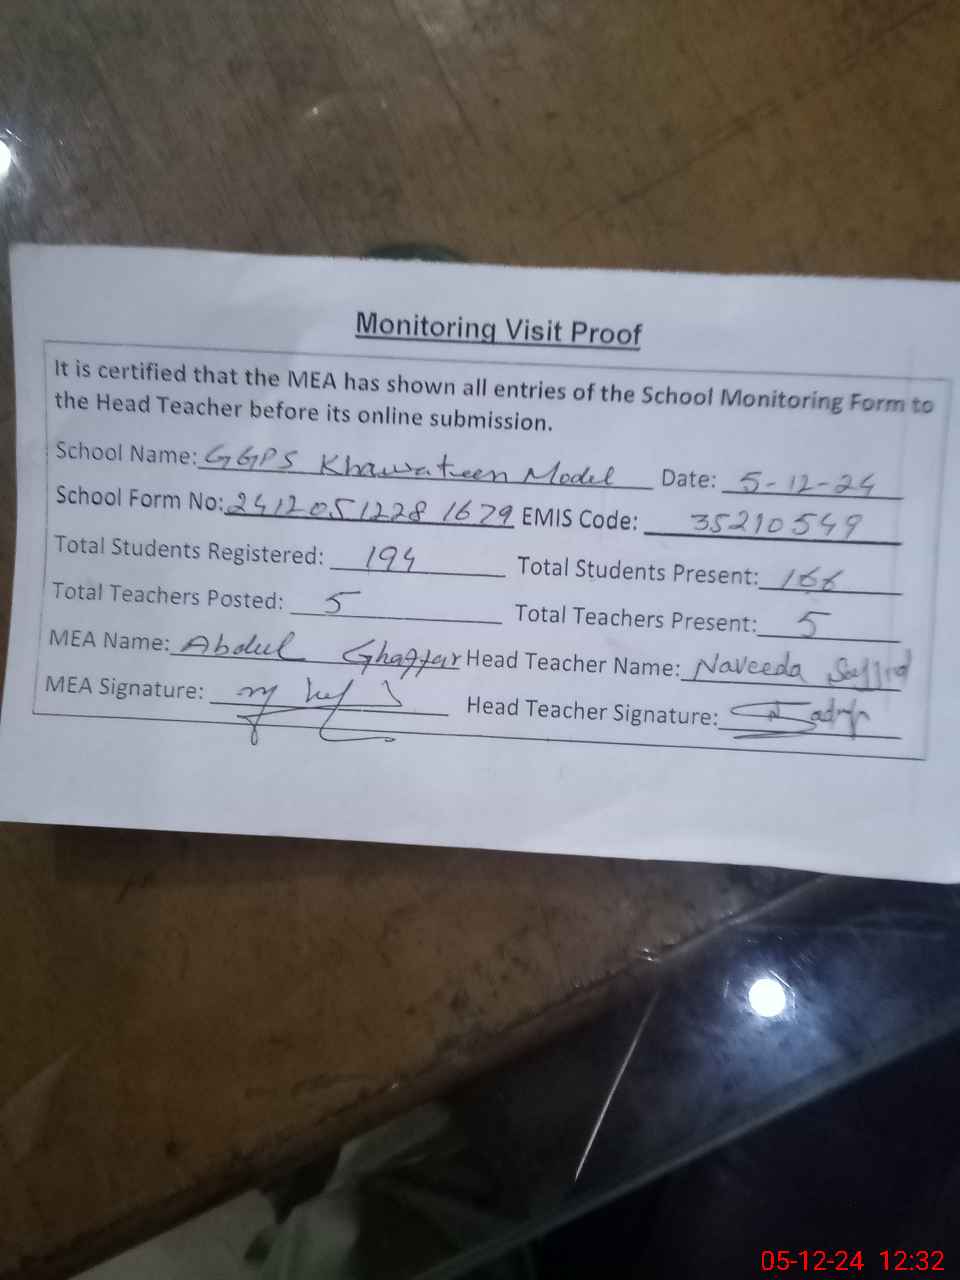 Monitoring Visit Proof
It is certified that the MEA has shown all entries of the School Monitoring Form to
the Head Teacher before its online submission.
School Name: GGPS Khawateen Model Date: 5-12-24
School Form No: 2412051228 1679 EMIS Code: 35210549
Total Students Registered: 194 Total Students Present: 166
Total Teachers Posted: 5 Total Teachers Present: 5
MEA Name: Abdul Ghaffar Head Teacher Name: Naveeda
MEA Signature: Head Teacher Signature:
05-12-24 12:32